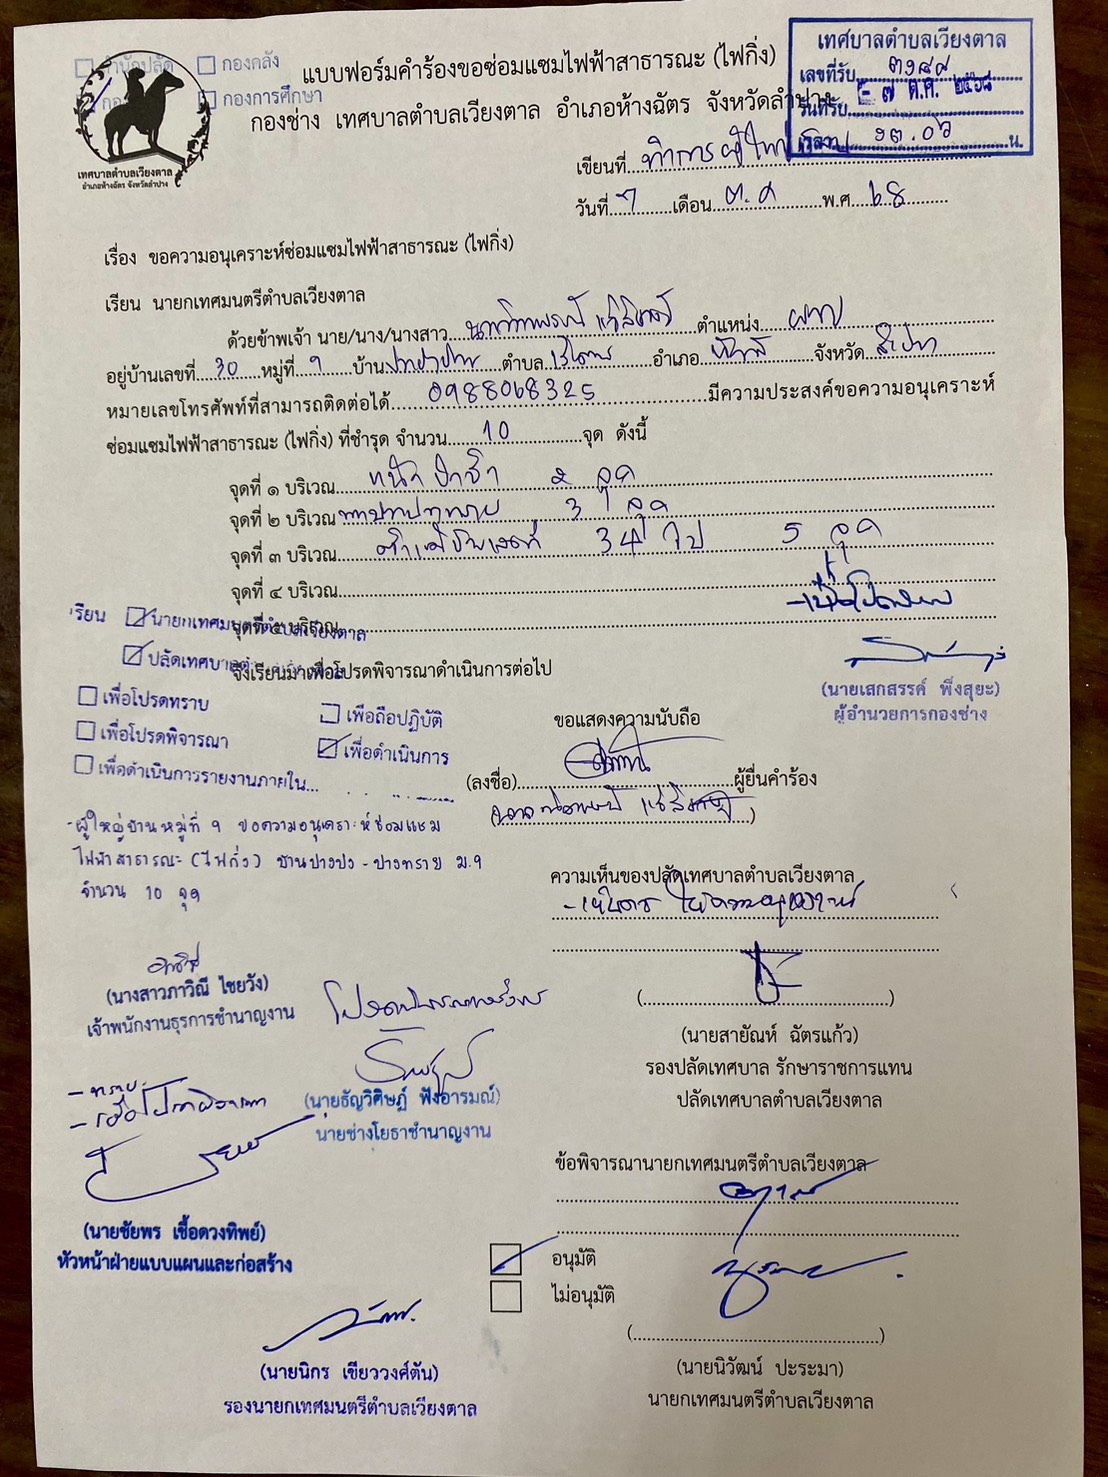 สำนักปลัด
กองคลัง
กองการศึกษา
เทศบาลตำบลเวียงตาล
อำเภอห้างฉัตร จังหวัดลำปาง
แบบฟอร์มคำร้องขอซ่อมแซมไฟฟ้าสาธารณะ (ไฟกิ่ง)
กองช่าง เทศบาลตำบลเวียงตาล อำเภอห้างฉัตร จังหวัดลำปาง
เทศบาลตำบลเวียงตาล
เลขที่รับ ๓๑๔๙
วันที่รับ ๗ ต.ค. ๒๕๖๘
เวลา ๑๓.๐๖ น.
เขียนที่ ที่ทำการผู้ใหญ่
วันที่ 7 เดือน ต.ค พ.ศ 68
เรื่อง ขอความอนุเคราะห์ซ่อมแซมไฟฟ้าสาธารณะ (ไฟกิ่ง)
เรียน นายกเทศมนตรีตำบลเวียงตาล
ด้วยข้าพเจ้า นาย/นาง/นางสาว ตำแหน่ง ผญบ
อยู่บ้านเลขที่ 30 หมู่ที่ 9 บ้าน ตำบล เวียงตาล อำเภอ ห้างฉัตร จังหวัด ลำปาง
หมายเลขโทรศัพท์ที่สามารถติดต่อได้ 0988068325 มีความประสงค์ขอความอนุเคราะห์
ซ่อมแซมไฟฟ้าสาธารณะ (ไฟกิ่ง) ที่ชำรุด จำนวน 10 จุด ดังนี้
จุดที่ ๑ บริเวณ หน้าป่าช้า 2 จุด
จุดที่ ๒ บริเวณ 3 จุด
จุดที่ ๓ บริเวณ 34 ไป 5 จุด
จุดที่ ๔ บริเวณ
จุดที่ ๕ บริเวณ
เรียน นายกเทศมนตรีตำบลเวียงตาล
ปลัดเทศบาลตำบล
จึงเรียนมาเพื่อโปรดพิจารณาดำเนินการต่อไป
(นายเสกสรรค์ พึ่งสุยะ)
ผู้อำนวยการกองช่าง
เพื่อโปรดทราบ
เพื่อถือปฏิบัติ
เพื่อโปรดพิจารณา
เพื่อดำเนินการ
เพื่อดำเนินการรายงานภายใน...
ขอแสดงความนับถือ
(ลงชื่อ) ผู้ยื่นคำร้อง
-ผู้ใหญ่บ้านหมู่ที่ 9 ขอความอนุเคราะห์ซ่อมแซม
ไฟฟ้าสาธารณะ (ไฟกิ่ง) บ้านปางปง - ปางทราย ม.9
จำนวน 10 จุด
ความเห็นของปลัดเทศบาลตำบลเวียงตาล
- เห็นควร ให้ความอนุเคราะห์
(นางสาวภาวิณี ไชยวัง)
เจ้าพนักงานธุรการชำนาญงาน
(นายสายัณห์ ฉัตรแก้ว)
รองปลัดเทศบาล รักษาราชการแทน
ปลัดเทศบาลตำบลเวียงตาล
(นายธัญวิศิษฏ์ ฟังอารมณ์)
นายช่างโยธาชำนาญงาน
- ทราบ
- เพื่อโปรดพิจารณา
(นายชัยพร เชื้อดวงทิพย์)
หัวหน้าฝ่ายแบบแผนและก่อสร้าง
ข้อพิจารณานายกเทศมนตรีตำบลเวียงตาล
อนุมัติ
ไม่อนุมัติ
(นายนิกร เขียววงศ์ตัน)
รองนายกเทศมนตรีตำบลเวียงตาล
(นายนิวัฒน์ ปะระมา)
นายกเทศมนตรีตำบลเวียงตาล